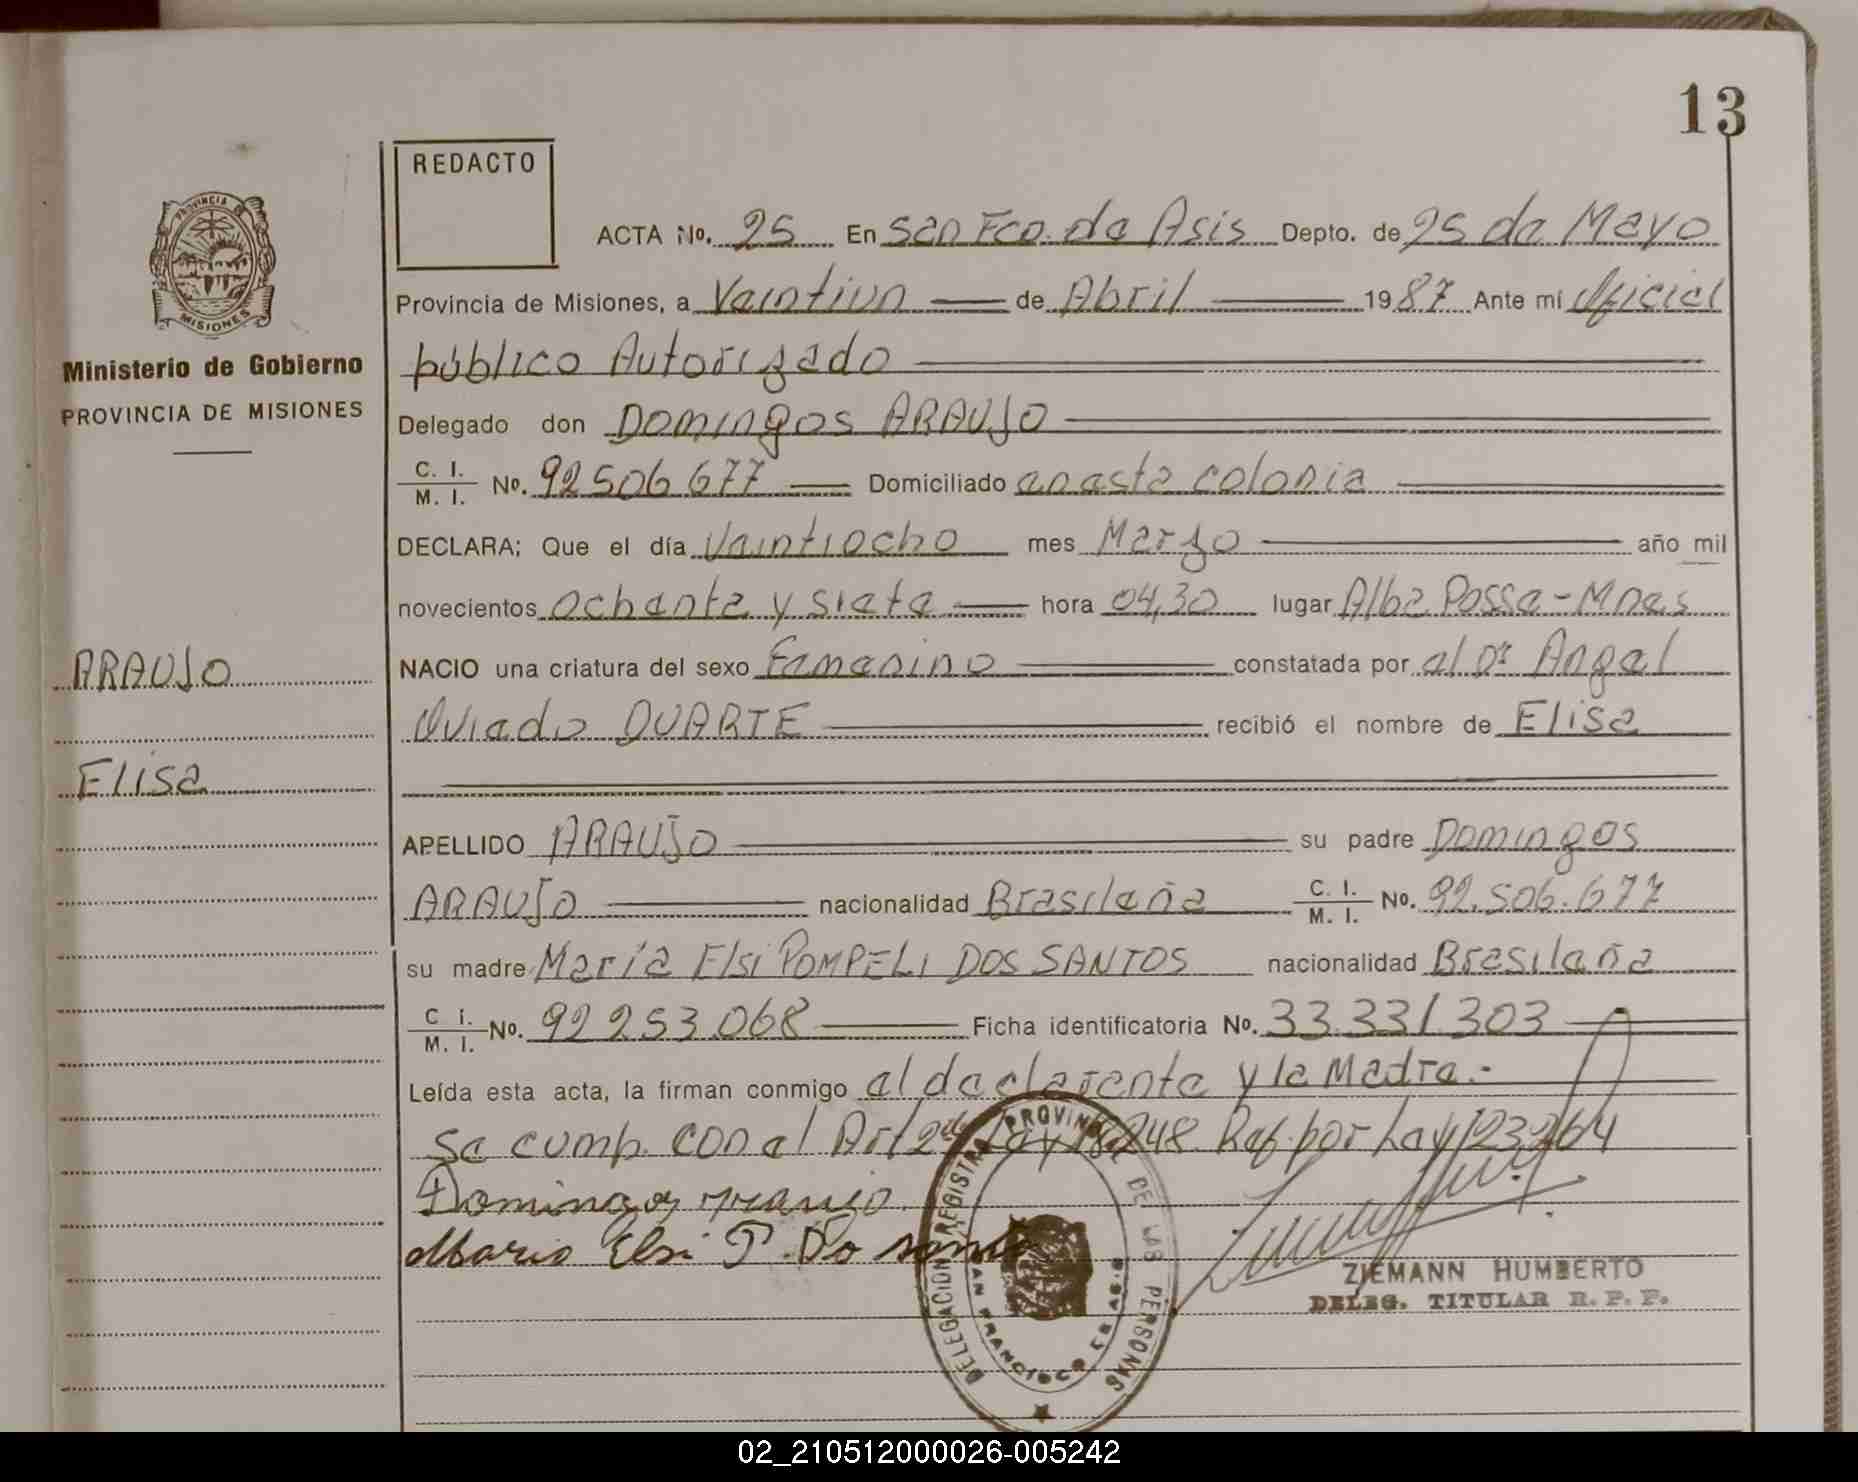 13
REDACTO
ACTA No. 25 En San Fco. de Asis Depto. de 25 de Mayo
Provincia de Misiones, a Veintiun de Abril 1987 Ante mí Oficial
público Autorizado
Delegado don Domingos ARAUJO
C. I. / M. I. No. 92506677 Domiciliado en esta colonia
DECLARA; Que el día Veintiocho mes Marzo año mil
novecientos ochenta y siete hora 04,30 lugar Alba Posse - Mnes
NACIO una criatura del sexo Femenino constatada por el Dr. Angel
Oviedo DUARTE recibió el nombre de Elisa
APELLIDO ARAUJO su padre Domingos
ARAUJO nacionalidad Brasileña C. I. / M. I. No. 92.506.677
su madre María Elsi POMPELI DOS SANTOS nacionalidad Brasileña
C. I. / M. I. No. 92 253.068 Ficha identificatoria No. 33.331.303
Leída esta acta, la firman conmigo el declarente y la Madre.-
Se cump. con el Art 2do Ley 18248. Ref. por Ley 23264
Domingos Araujo
Maria Elsi P. Do santo
ZIEMANN HUMBERTO
DELEG. TITULAR R. P. P.
DELEGACION REGISTRO PROVINCIAL DE LAS PERSONAS
SAN FRANCISCO DE ASIS
PROVINCIA DE
MISIONES
Ministerio de Gobierno
PROVINCIA DE MISIONES
ARAUJO
Elisa
02_210512000026-005242